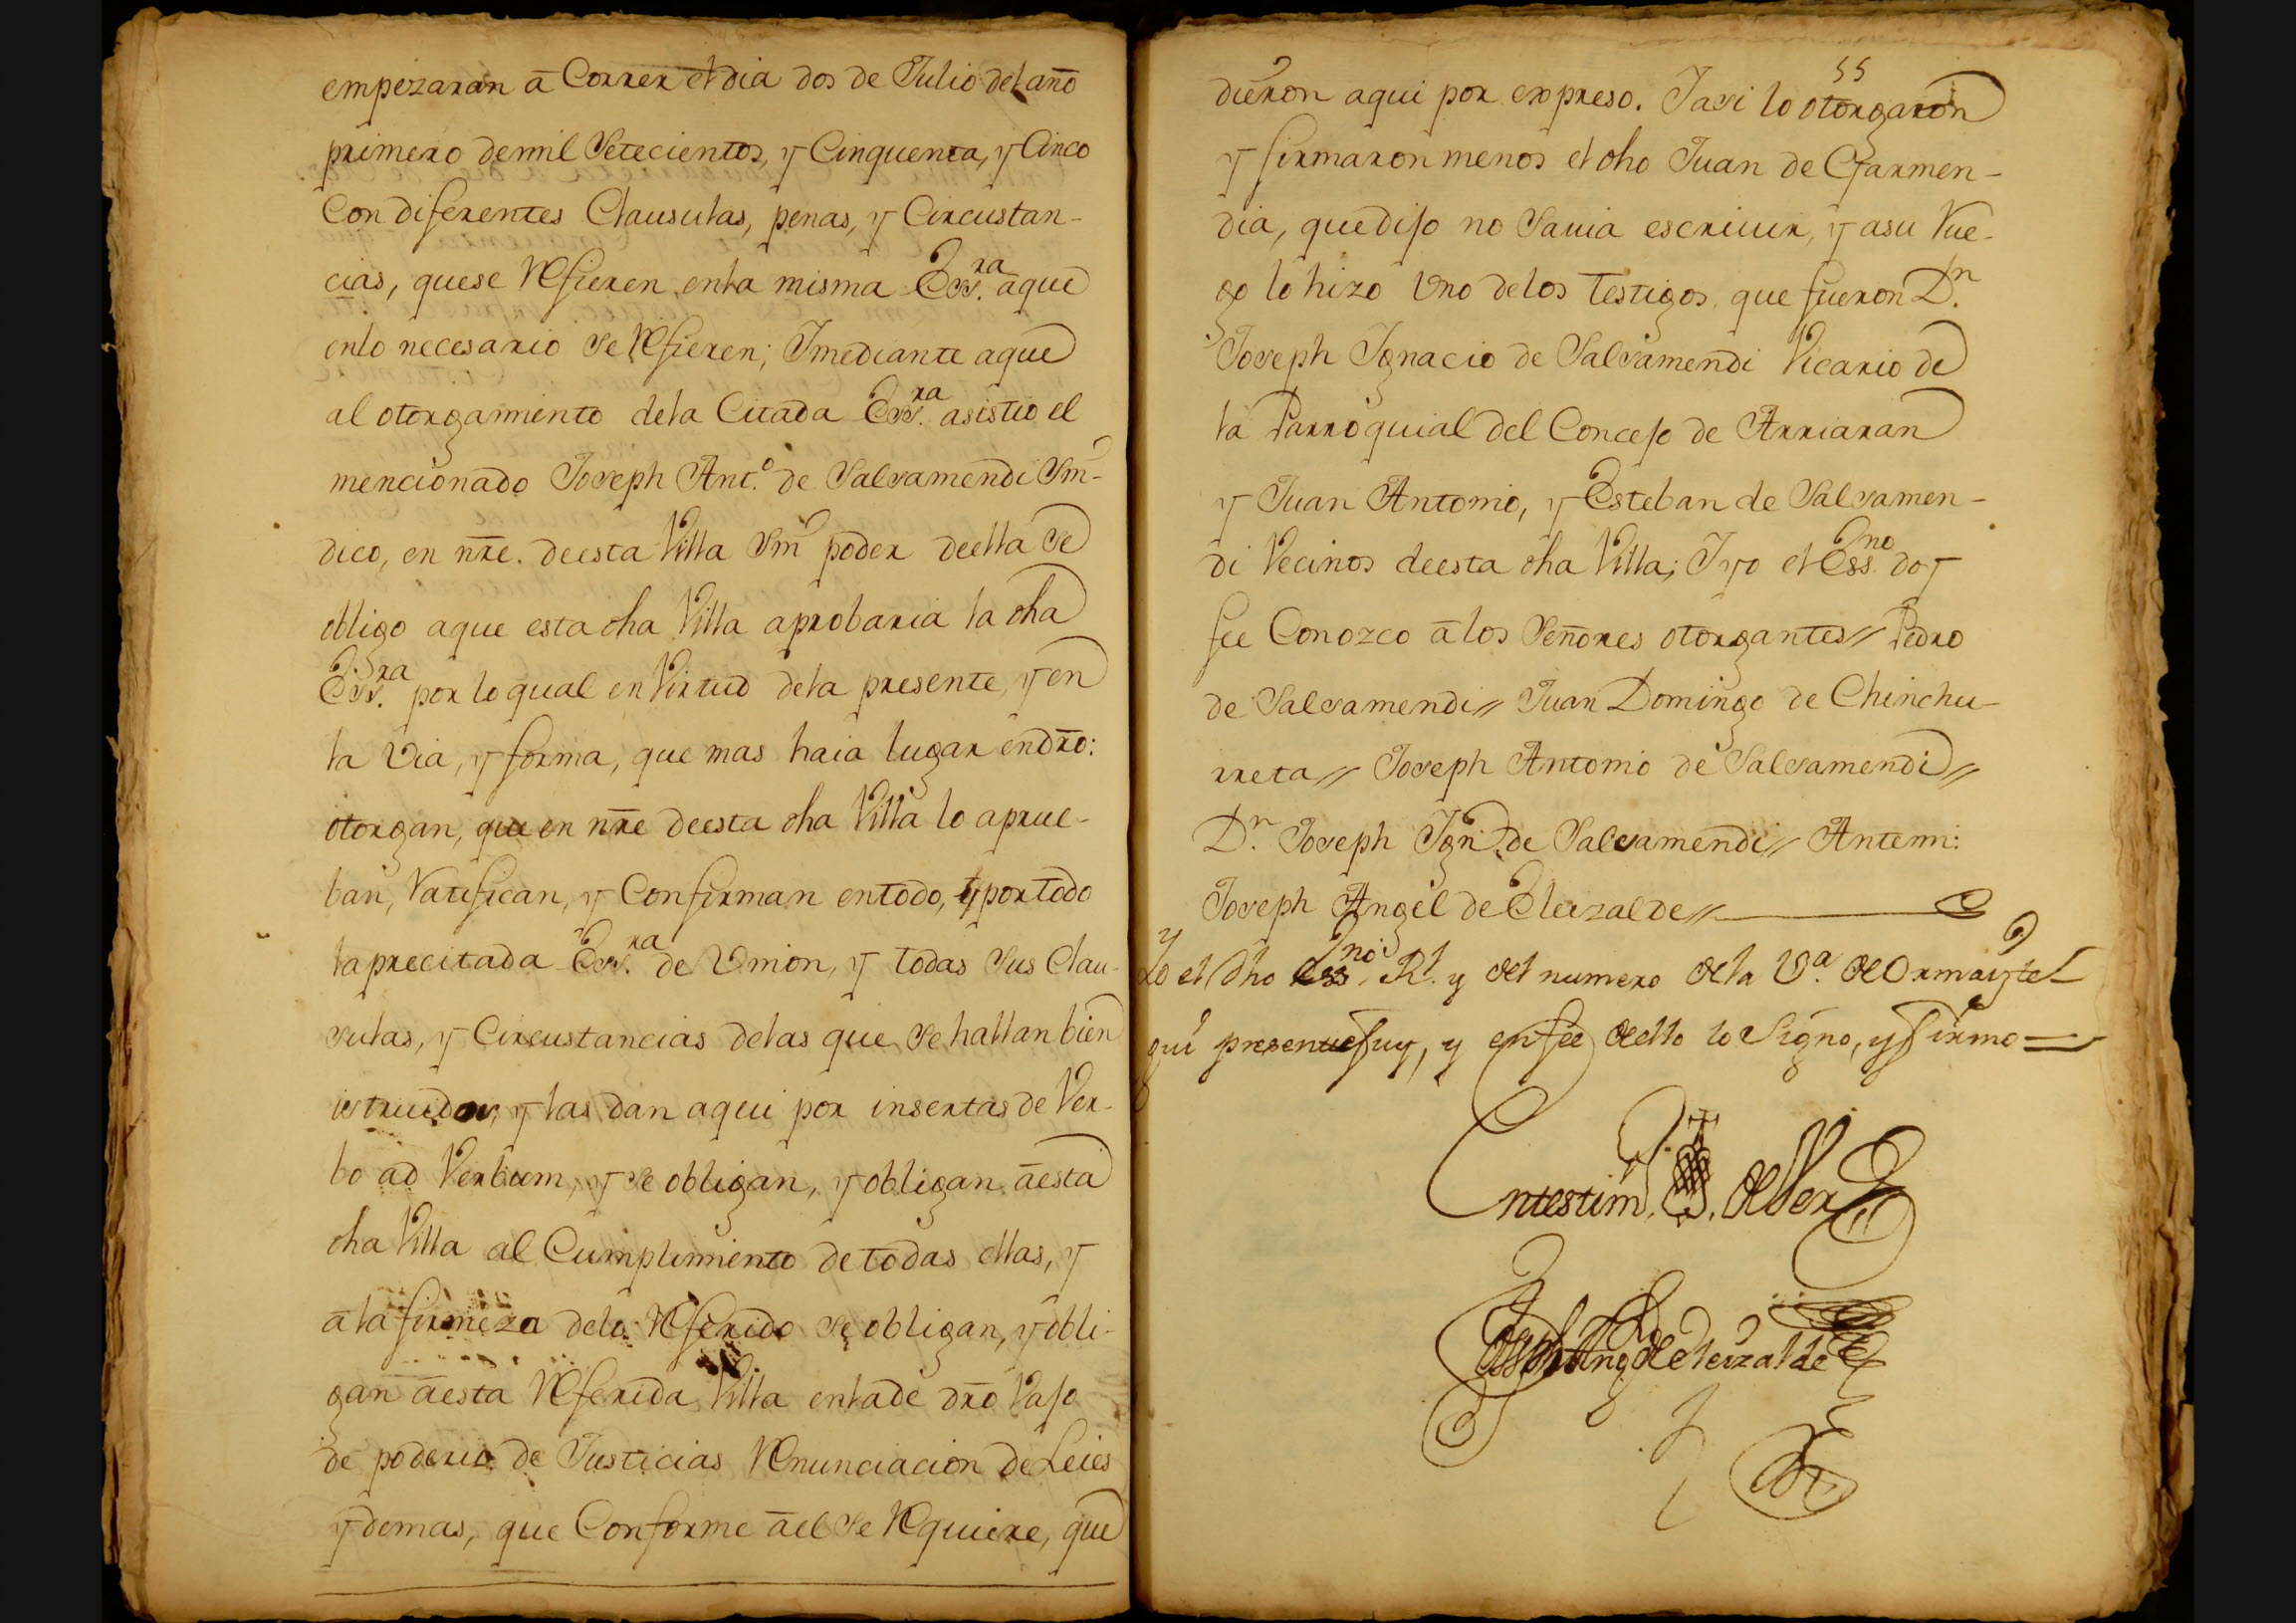 empezaran ā Correr el dia dos de Julio del año
primero de mil Setecientos, y Cinquenta, y Cinco
Con diferentes Clausulas, penas, y Circustan-
cias, que se Refieren en la misma Ess.ra aque
en lo necesario se Refieren; Imediante aque
al otorgamiento de la Citada Ess.ra asistio el
mencionado Joseph Ant.o de Salsamendi Sin-
dico, en nr̄e. de esta Villa Sin poder de ella se
obligo aque esta dha Villa aprobaria la dha
Ess.ra por lo qual en Virtud de la presente, y en
la Via, y forma, que mas haia lugar en dr̄o:
otorgan, que en nr̄e de esta dha Villa lo aprue-
ban, Ratifican, y Confirman en todo, y por todo
la precitada Ess.ra de Union, y todas sus Clau-
sulas, y Circustancias de las que se hallan bien
istruidos, y las dan aqui por insertas de Ver-
bo ad Verbum, y se obligan, y obligan āesta
dha Villa al Cumplimiento de todas ellas, y
ā la firmeza delo Referido se obligan, y obli-
gan āesta Referida Villa en la de dr̄o Vajo
de poderio de Justicias Renunciacion de Leies
y demas, que Conforme āel se Requiere, que
55
dieron aqui por expreso. I asi lo otorgaron
y firmaron menos el dho Juan de Garmen-
dia, que dijo no Sauia escriuir, y asu Rue-
go lo hizo Uno de los Testigos, que fueron D.n
Joseph Ignacio de Salsamendi Vicario de
la Parroquial del Concejo de Arriaran
y Juan Antonio, y Esteban de Salsamen-
di Vecinos de esta dha Villa; I yo el Ess.no doy
fee Conozco ā los Señores otorgantes// Pedro
de Salsamendi// Juan Domingo de Chinchu-
rreta// Joseph Antonio de Salsamendi//
D.n Joseph Ign.o de Salsamendi// Antemi:
Joseph Angel de Eleizalde//
Yo el dho Ess.no Rl. y del numero de la V.a de Ormaizte-
gui presente fuy, y en fee de ello lo Signo, y firmo=
En testim.o de Ver
Joseph Ang.l de Eleizalde